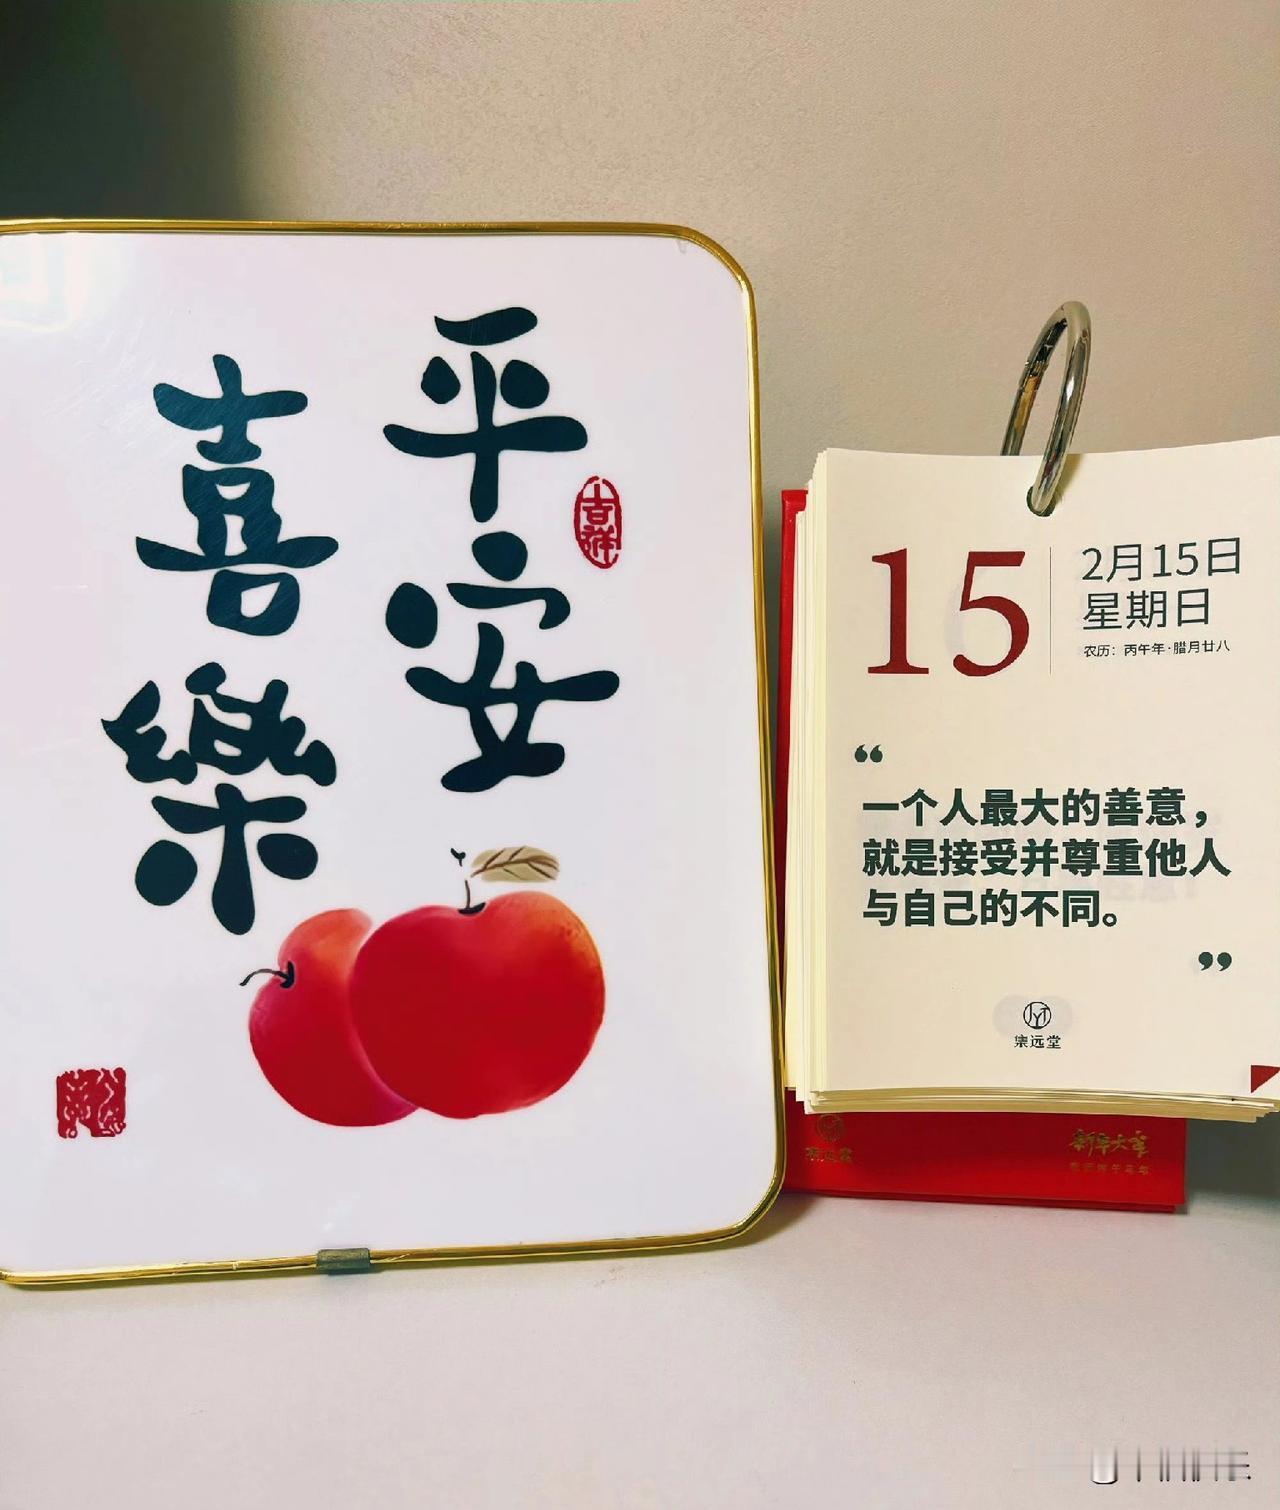 平安
喜樂
吉祥
15
2月15日
星期日
农历：丙午年·腊月廿八
“
一个人最大的善意，
就是接受并尊重他人
与自己的不同。
”
集远堂
集远堂